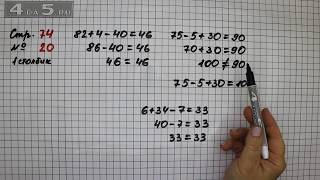 4 DA 5 .RU
Стр. 74
№ 20
1 столбик
82+4-40=46
86-40=46
46=46
75-5+30=90
70+30=90
100≠90
75-5+30=10
6+34-7=33
40-7=33
33=33